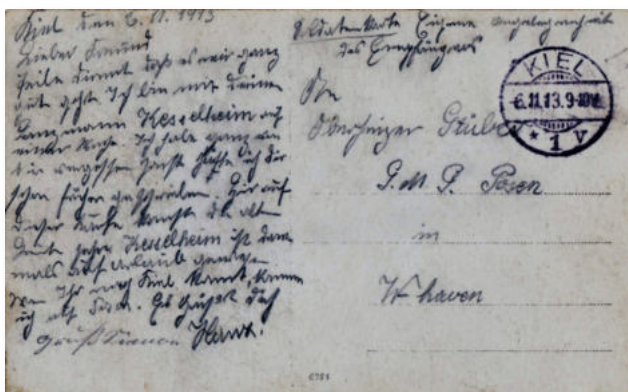 Kiel den 6.11.1913
Lieber Freund
Teile Dir mit daß es mir ganz
gut geht. Ich bin mit Deinem
Kesselheim auf
einer Ich habe ganz
vergessen sonst hätte ich Dir
schon früher geschrieben. Hier auf
dieser Karte kannst Du alte
Leute sehen Kesselheim ist da
mals auf Urlaub gewesen
Wen Ihr nach Kiel kommt, komm
ich auf Posen. Es grüßt Dich
Soldatenkarte Eigene Angelegenheit
des Empfängers
An
Oberheizer Stüber
S.M.S. Posen
in
W'haven
KIEL
6.11.13.9-10V
* 1 V